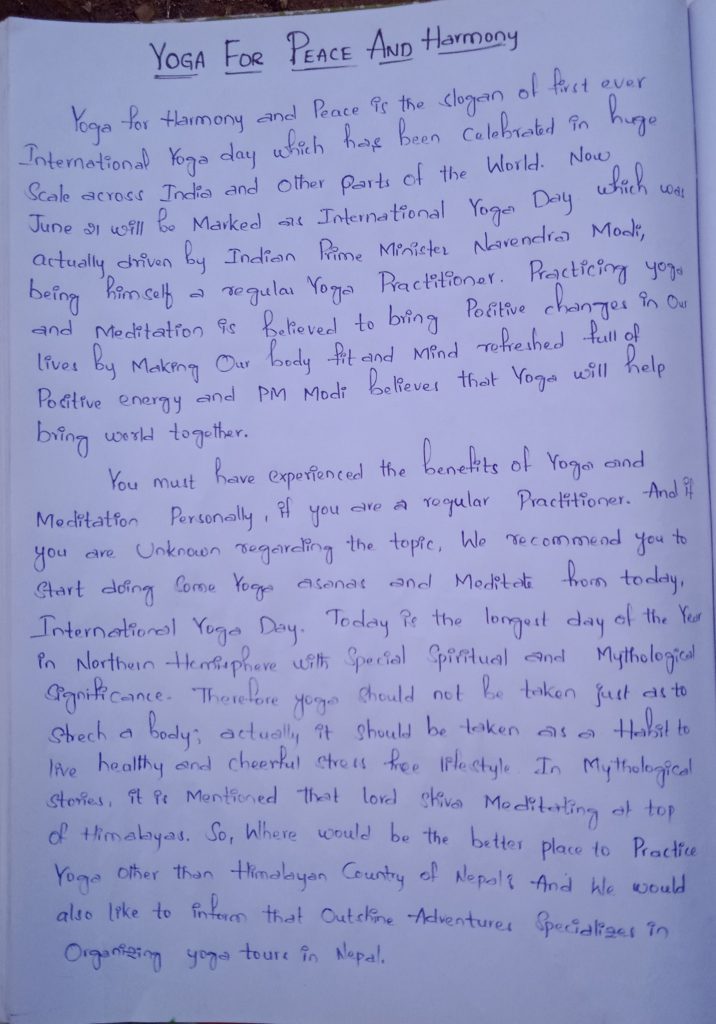 YOGA FOR PEACE AND Harmony
Yoga for Harmony and Peace is the slogan of first ever
International Yoga day which has been Celebrated in huge
Scale across India and other parts of the World. Now
June 21 will be Marked as International Yoga Day which was
actually driven by Indian Prime Minister Narendra Modi,
being himself a regular Yoga Practitioner. Practicing yoga
and Meditation is believed to bring Positive changes in Our
lives by Making Our body fit and Mind refreshed full of
Positive energy and PM Modi believes that Yoga will help
bring world together.
You must have experienced the benefits of Yoga and
Meditation Personally, if you are a regular Practitioner. And if
you are Unknown regarding the topic, We recommend you to
Start doing Some Yoga asanas and Meditate from today,
International Yoga Day. Today is the longest day of the Year
in Northern Hemisphere with Special Spiritual and Mythological
Significance. Therefore yoga Should not be taken just as to
Strech a body; actually it should be taken as a Habit to
live healthy and cheerful stress free lifestyle. In Mythological
Stories, it is Mentioned that lord shiva Meditating at top
of Himalayas. So, Where would be the better place to Practice
Yoga other than Himalayan Country of Nepal? And We would
also like to inform that Outshine Adventures Specializes in
Organizing yoga tours in Nepal.